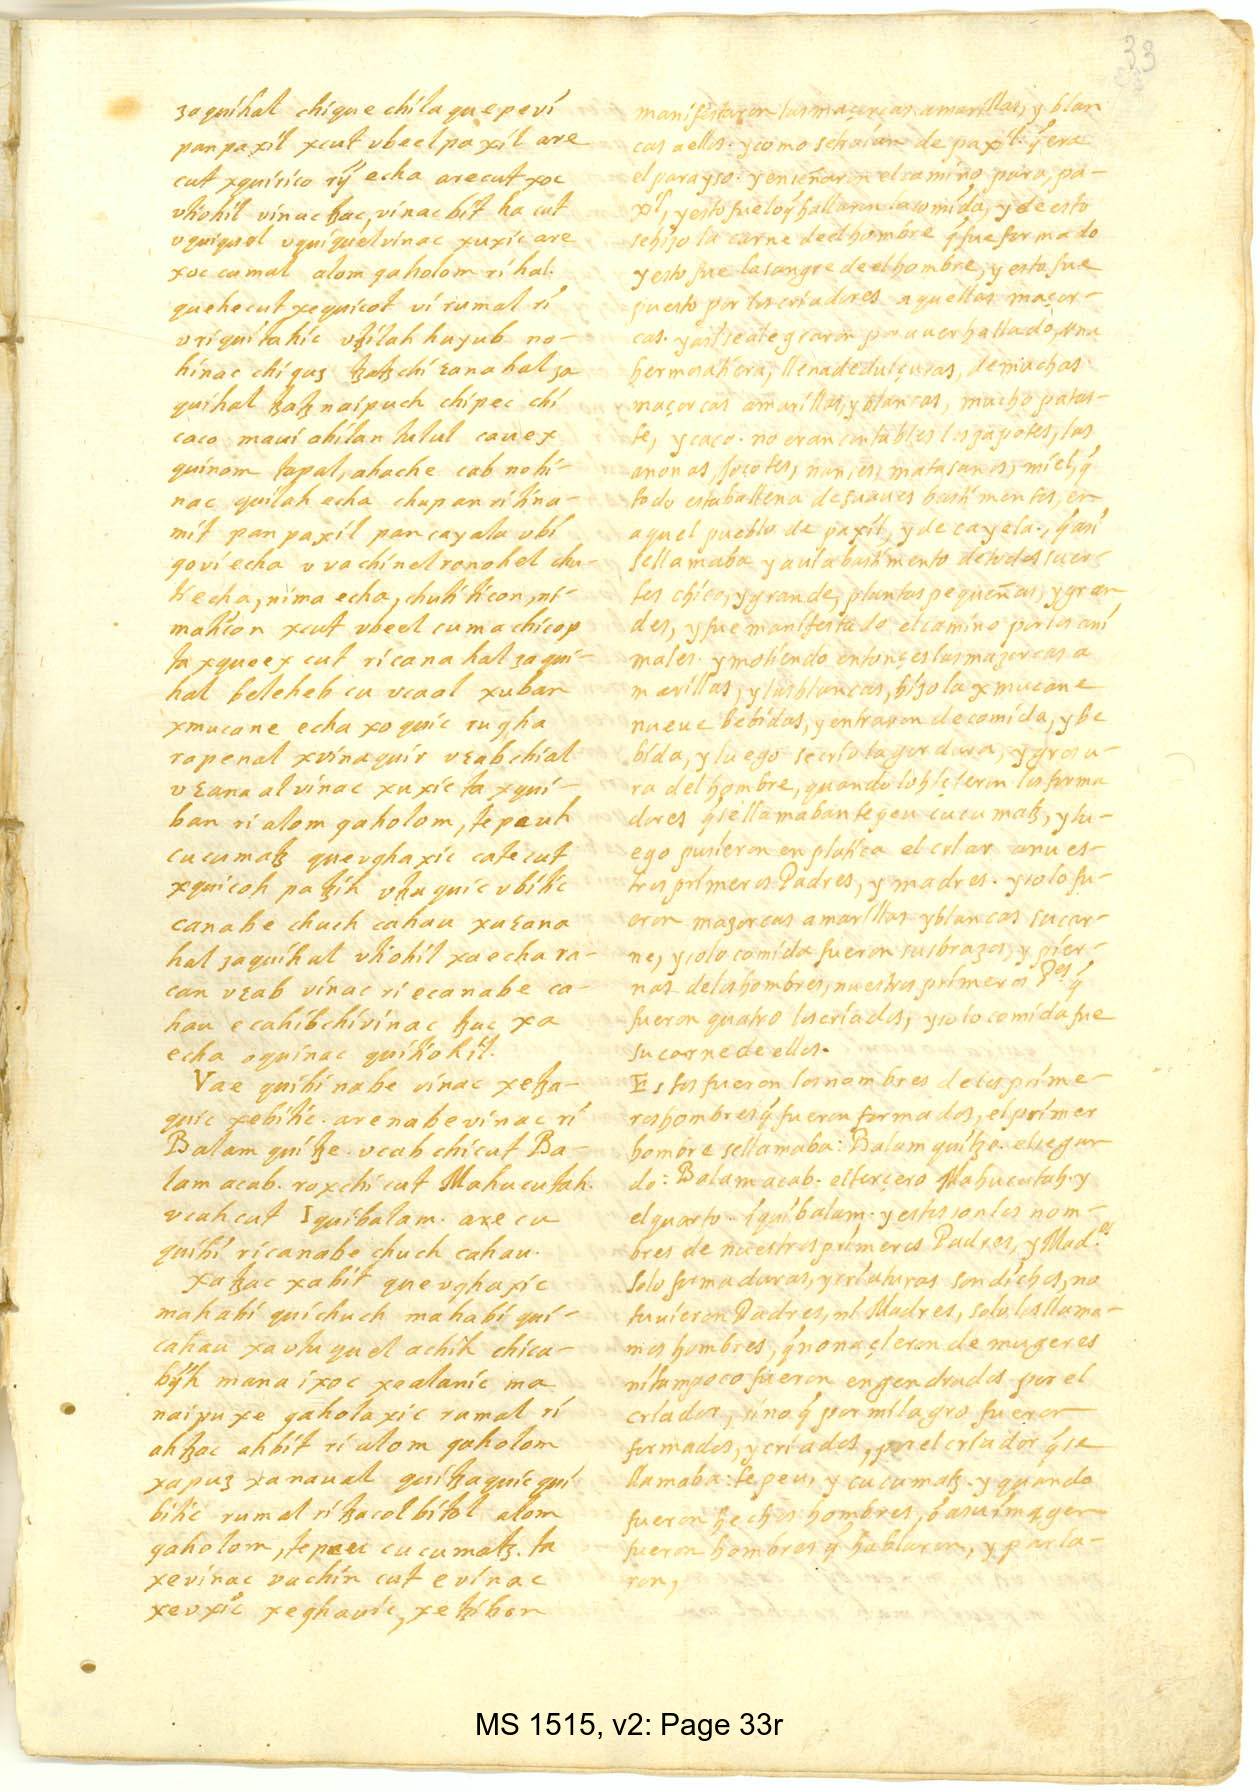 33
ʒaquihal chique chila quepevi
panpaxil xcut ubeel paxil are
cut xquirico rij echa arecut xoc
utiohil vinac ꜭac, vinac bit ha cut
uquiquel uquiquel vinac xuxic are
xoc cumal alom qaholom ri hal.
quehecut xequicot vi rumal ri
uriquitahic utzilah huyub no-
hinac chi quʒ tzatz chi ɛana hal ʒa
quihal tzatz naipuch chi pec chi
caco maui ahilan tulul cavex
quinom tapal, ahache cab nohi-
nac quilah echa chupan ri tina-
mit pan paxil pan cayala ubi
qovi echa u vachinel ronohel chu-
ti echa, nima echa, chuti ticon, ni-
maticon xcut ubeel cuma chicop
ta xqueex cut ri cana hal ʒaqui-
hal beleheb cu ucaal xuban
xmucane echa xoquic rugha
rapenal xvinaquir uɛabchial
uɛanaal vinac xuxic ta xqui-
ban ri alom qaholom, tepeuh
cucumatz queughaxic catecut
xquicoh pa tzih utzaquic ubitic
canabe chuch cahau xa ɛana
hal ʒaquihal utiohil xa echa ra-
can uɛab vinac ri e canabe ca-
hau e cahib chi vinac ꜭac xa
echa oquinac quitiohil.
Vae quibi nabe vinac xetza-
quic xebitic. are nabe vinac ri
Balam quitze. ucab chicut Ba-
lam acab. roxchicut Mahucutah.
ucahcut Iquibalam. are cu
quibi ri canabe chuch cahau.
Xa tzac xa bit queughaxic
mahabi quichuch mahabi qui-
cahau xa utuquel achih chica-
bijh mana ixoc xealanic ma
naipu xe qaholaxic rumal ri
ahtzac ahbit ri alom qaholom
xa puʒ xa naual quitzaquic qui
bitic rumal ri tzacol bitol alom
qaholom, tepeu cucumatz. ta
xe vinac vachin cut e vinac
xeuxic xeghauic, xetzibon
manifestaron las maçorcas amarillas, y blan
cas a ellos. y como se haían de paxil. q̃ era
el parayso. y enseñaron el camino para, pa-
xil, y esto fue lo q̃ hallaron la comida, y de esto
se hizo la carne de el hombre q̃ fue formado
y esto fue la sangre de el hombre, y esto fue
puesto por los criadores aquellas maçor-
cas. y assi se alegraron por auer hallado, una
hermosa tiera, llena de dulçuras, de muchas
maçorcas amarillas, y blancas, mucho patas-
te, y caco. no eran contables los zapotes, las
anonas, jocotes, nançes, matasanos, miel, q̃
todo estaba llena de suaues bastimentos, en
aquel pueblo de paxil, y de cayela., q̃ asi
se llamaba y auia bastimento de todas suer-
tes chico, y grande, plantas pequeñas, y gran
des, y fue manifestado el camino por los ani
males. y moliendo entonçes las mazorcas a
marillas, y las blancas, hizo la xmucane
nueue bebidas, y entraron de comida, y be
bida, y luego se crio la gordura, y grosu-
ra del hombre, quando lo hicieron los forma
dores q̃ se llamaban tepeu cucumatz, y lu-
ego pusieron en platica el criar a nues-
tros primeros Padres, y madres. y solo fu-
eron mazorcas amarillas y blancas su car-
ne, y solo comida fueron sus brazos, y pier-
nas de los hombres, nuestros primeros P.es q̃
fueron quatro los criados, y solo comida fue
su carne de ellos.
Estos fueron los nombres de los prime-
ros hombres q̃ fueron formados, el primer
hombre se llamaba: Balam quitze. el segun
do: Balam acab. el terçero Mahucutah. y
el quarto. iquibalam. y estos son los nom-
bres de nuestros primeros Padres, y Mad.es
Solo formaduras, y criaturas son dichos, no
tuuieron Padres, ni Madres, solo los llama-
mos hombres, q̃ no naçieron de mugeres
ni tampoco fueron engendrados por el
criador, sino q̃ por milagro fueron
formados, y criados, por el criador q̃ se
llamaba: tepeu, y cucumatz. y quando
fueron hechos hombres, o a su imagen
fueron hombres q̃ hablaron, y parla-
ron,
MS 1515, v2: Page 33r